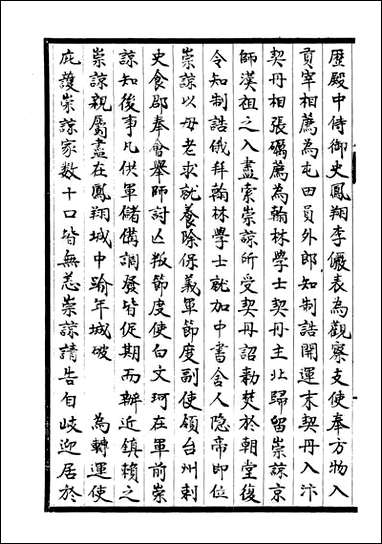 歴殿中侍御史鳳翔李儼表為觀察支使奉方物入
貢宰相薦為屯田員外郎知制誥開運末契丹入汴
契丹相張礪薦為翰林學士契丹主北歸留崇諒京
師漢祖之入盡索崇諒所受契丹詔勅焚於朝堂復
令知制誥俄拜翰林學士就加中書舍人隱帝即位
崇諒以母老求就養除保義軍節度副使領台州刺
史食郡奉會舉師討亾叛節度使白文珂在軍前崇
諒知後事凡供軍儲備調發皆促期而辦近鎮賴之
崇諒親屬盡在鳳翔城中踰年城破　為轉運使
庇護崇諒家數十口皆無恙崇諒請告自岐迎居於